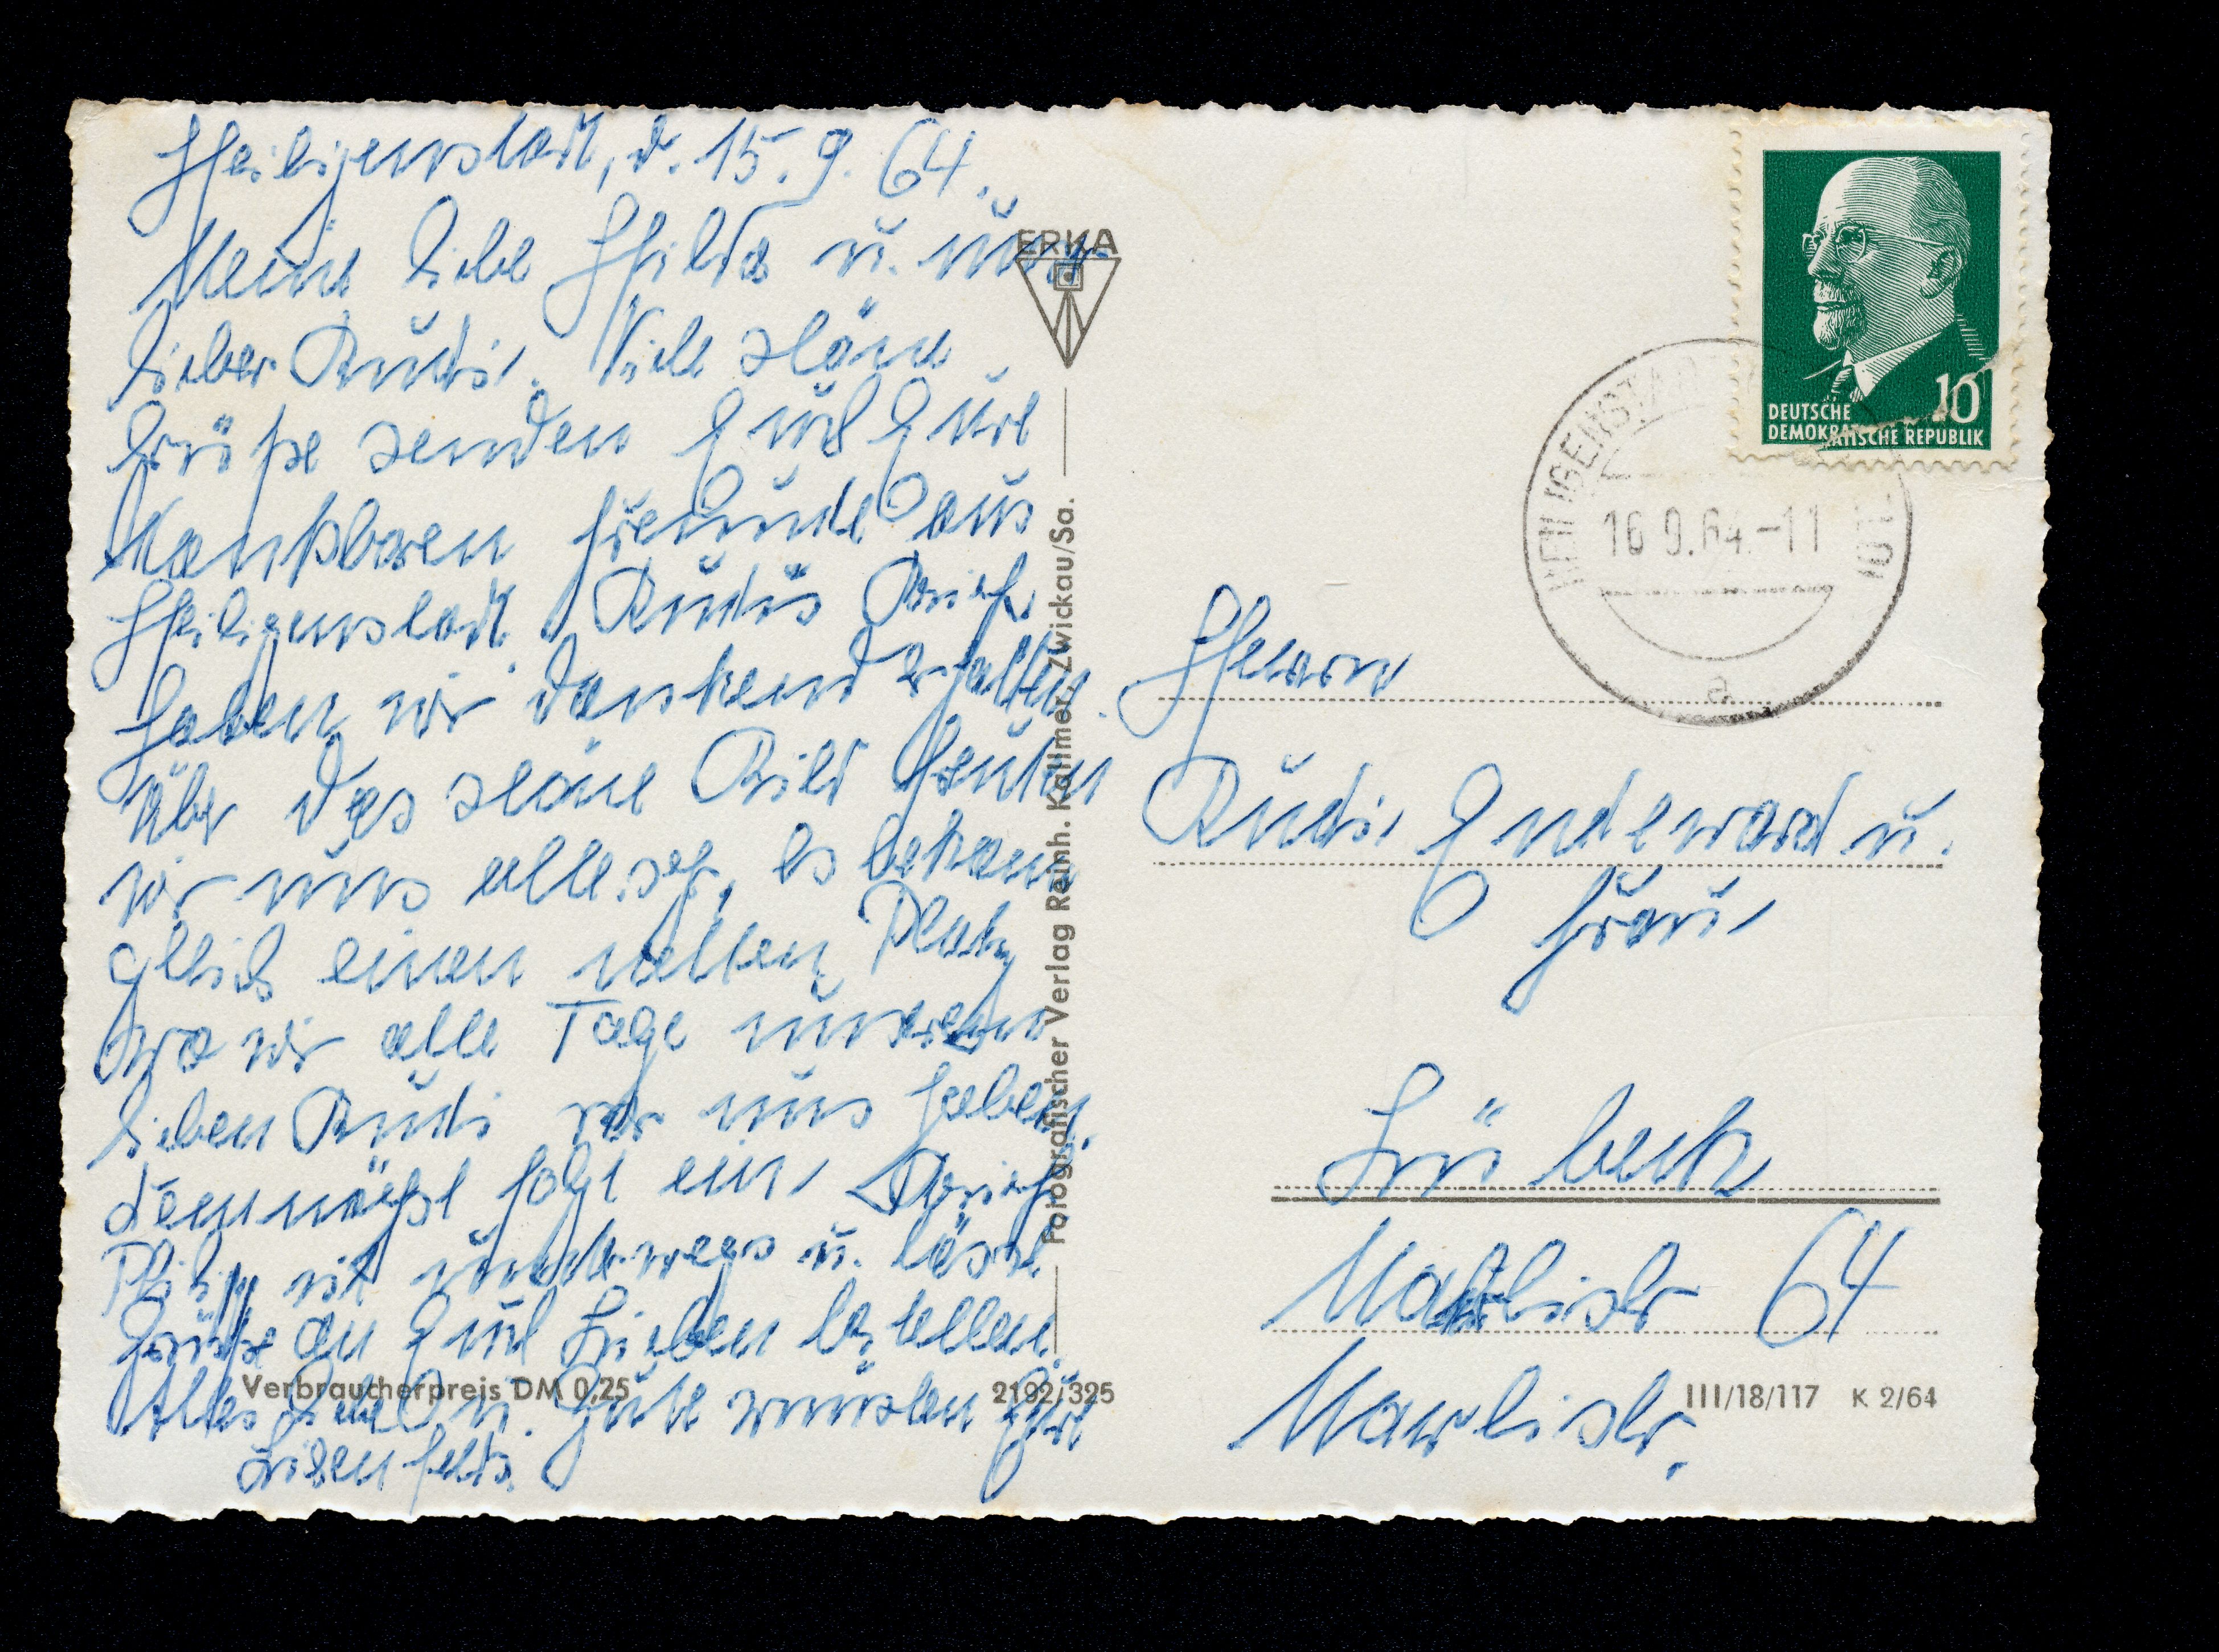 Heiligenstadt, d. 15.9.64.
Meine liebe Hilda u. unser
lieber Rudi. Viele schöne
Grüße senden Euch Eure
dankbaren Freunde aus
Heiligenstadt. Rudis Brief
haben wir dankend erhalten.
Über das schöne Bild freuten
wir uns alle sehr, es bekam
gleich einen netten Platz
wo wir alle Tage unseren
lieben Rudi vor uns haben.
demnächst folgt ein Brief
ist unterwegs u. lässt
Grüße an Euch Lieben bestellen.
Alles u. Gute wünschen Ihre
ERKA
Fotografischer Verlag Reinh. Kallmer, Zwickau/Sa.
Verbraucherpreis DM 0,25
2192/325
10
DEUTSCHE
DEMOKRATISCHE REPUBLIK
HEILIGENSTADT
16.9.64.-11
a
Herrn
Rudi u.
Frau
Lübeck
Marlistr 64
Marlistr.
III/18/117 K 2/64